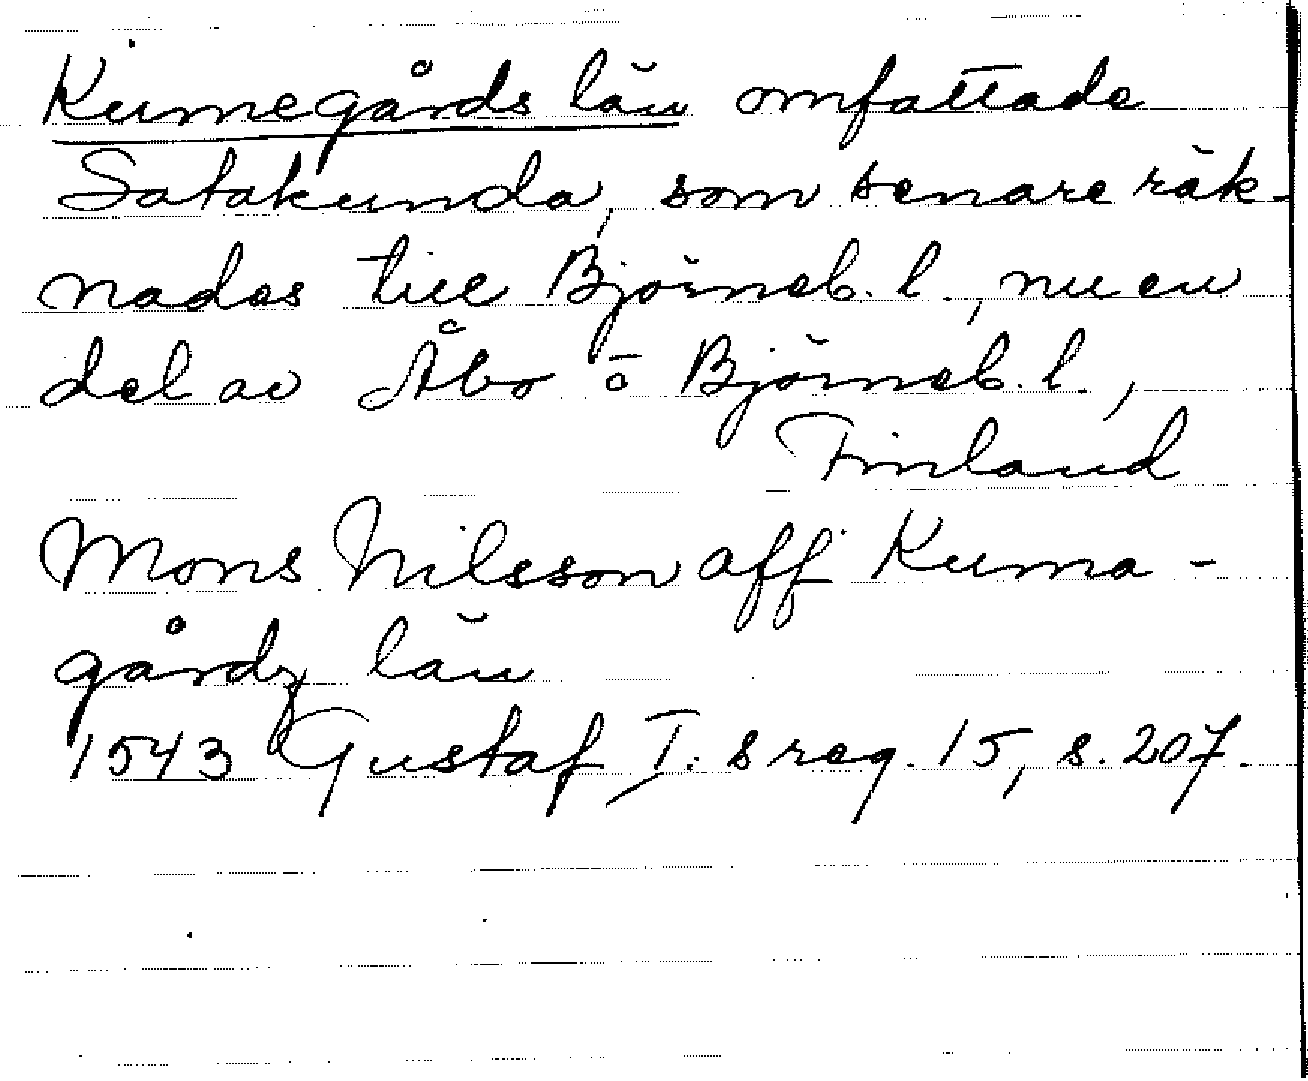 Kumegårds län omfattade
Satakunda, som senare räk-
nades till Björneb. l., nu en
del av Åbo o Björneb. l.,
Finland
Mons Nilsson aff Kuma-
gårdz län
1543 Gustaf I:s reg. 15, s. 207.